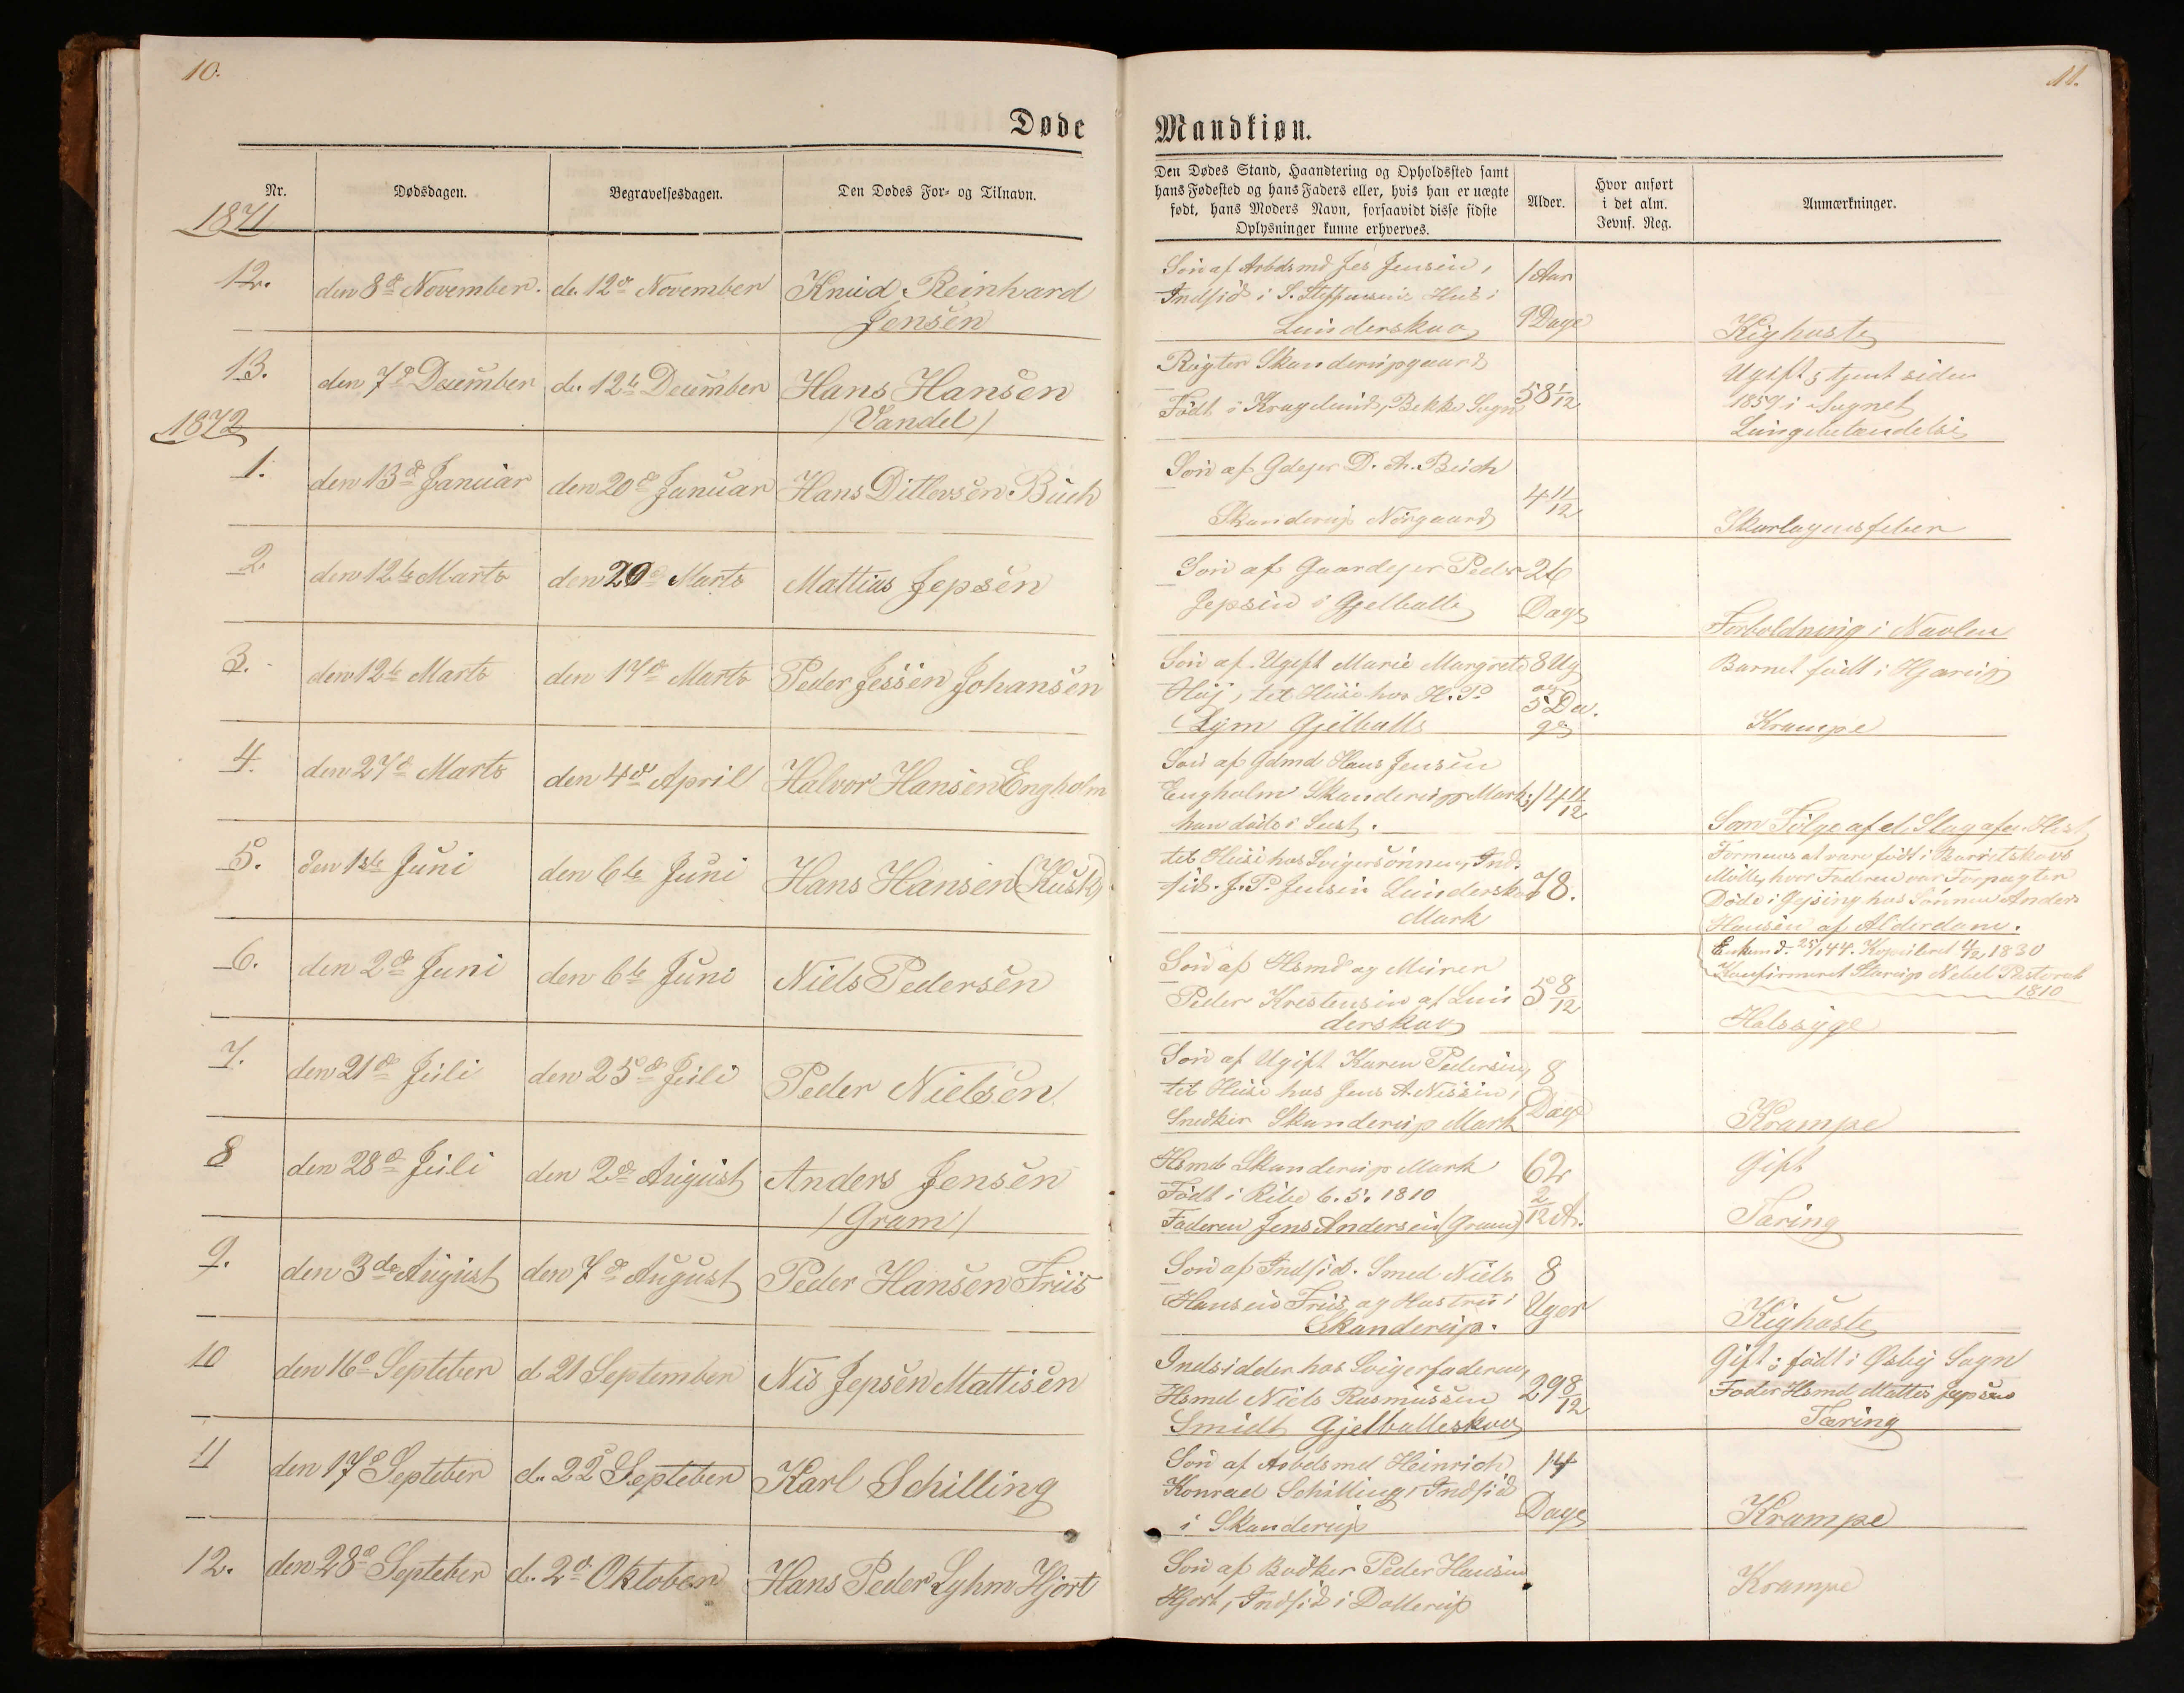 10.
11.
Døde
Mandkiøn.
Nr.
Dødsdagen.
Begravelsesdagen.
Den Dødes For- og Tilnavn.
Den Dødes Stand, Haandtering og Opholdssted samt
hans Fødested og hans Faders eller, hvis han er uægte
født, hans Moders Navn, forsaavidt disse sidste
Oplysninger kunne erhverves.
Alder.
Hvor anført
i det alm.
Jevnf. Reg.
Anmærkninger.
1871
12.
den 8de November.
d. 12te November
Knud Reinhard
Jensen
Søn af Arbdsmd Jes Jensen,
Indsid i S. Steffensens Hus i
Lunderskov
1 Aar
9 Dage
Kighoste
13.
den 7de December
d. 12te December
Hans Hansen
(Vandel)
Røgter Skanderupgaard
Født i Kragelund, Bække Sogn
58 1/12
Ugift, tjent siden
1859 i Sognet
Lungebetændelse
1872
1.
den 13de Januar
den 20de Januar
Hans Ditlevsen Buch
Søn af Gdejer D. A. Buch
Skanderup Nørgaard
4 11/12
Skarlagensfeber
2
den 12te Marts
den 20de Marts
Mattias Jepsen
Søn af Gaardejer Peder
Jepsen i Gjelballe
26
Dage
Forboldning i Navlen
3.
den 12te Marts
den 17de Marts
Peder Jessen Johansen
Søn af Ugift Marie Margrete
Høj, tet Huse hos H. P.
Lym Gjelballe
8 Ug
og
5 Da.
ge
Barnet født i Hjarup
Krampe
4.
den 27de Marts
den 4de April
Halvor Hansen Engholm
Søn af Gdmd Hans Jensen
Engholm Skanderup Mark,
han døde i Seest.
14 11/12
Som Følge af et Slag af en Hest
5.
den 1ste Juni
den 6te Juni
Hans Hansen (Kusk)
tet Huse hos Svigersønnen, Ind-
sid. J. P. Jensen Lunderskov
Mark
78.
Formenes at være født i Barritskovs
Mølle, hvor Faderen var Forpagter
Døde i Gejsing hos Sønnen Anders
Hansen af Alderdom.
Enkemd. 25/1 44. Kopuleret 4/2 1830
Konfirmeret Starup Nebel Pastorat
1810
6.
den 2de Juni
den 6te Juni
Niels Pedersen
Søn af Hsmd og Murer
Peder Kristensen af Lun
derskov
5 8/12
Halssyge
7.
den 21de Juli
den 25de Juli
Peder Nielsen
Søn af Ugift Karen Pedersen,
tet Huse hos Jens A. Nissen,
Snedker Skanderup Mark
8
Dage
Krampe
8
den 28de Juli
den 2de August
Anders Jensen
(Gram)
Hsmd Skanderup Mark
Født i Ribe 6. 5. 1810
Faderen Jens Andersen (Gram)
62
2/12 A.
Gift
Tæring
9.
den 3de August
den 7de August
Peder Hansen Friis
Søn af Indsid. Smed Niels
Hansen Friis og Hustru i
Skanderup.
8
Uger
Kighoste
10
den 16de Septeber
d. 21 September
Nis Jepsen Mattisen
Indsidder hos Svigerfaderen,
Hsmd Niels Rasmussen
Smidt Gjelballeskov
29 8/12
Gift; født i Øsby Sogn
Fader Hsmd Mattis Jepsen
Tæring
11
den 17de Septeber
d. 22de Septeber
Karl Schilling
Søn af Arbdsmd Heinrich
Konrad Schilling, Indsid
i Skanderup
14
Dage
Krampe
12.
den 28de Septeber
d. 2de Oktober
Hans Peder Lyhm Hjort
Søn af Bødker Peder Hansen
Hjort, Indsid i Dollerup
Krampe